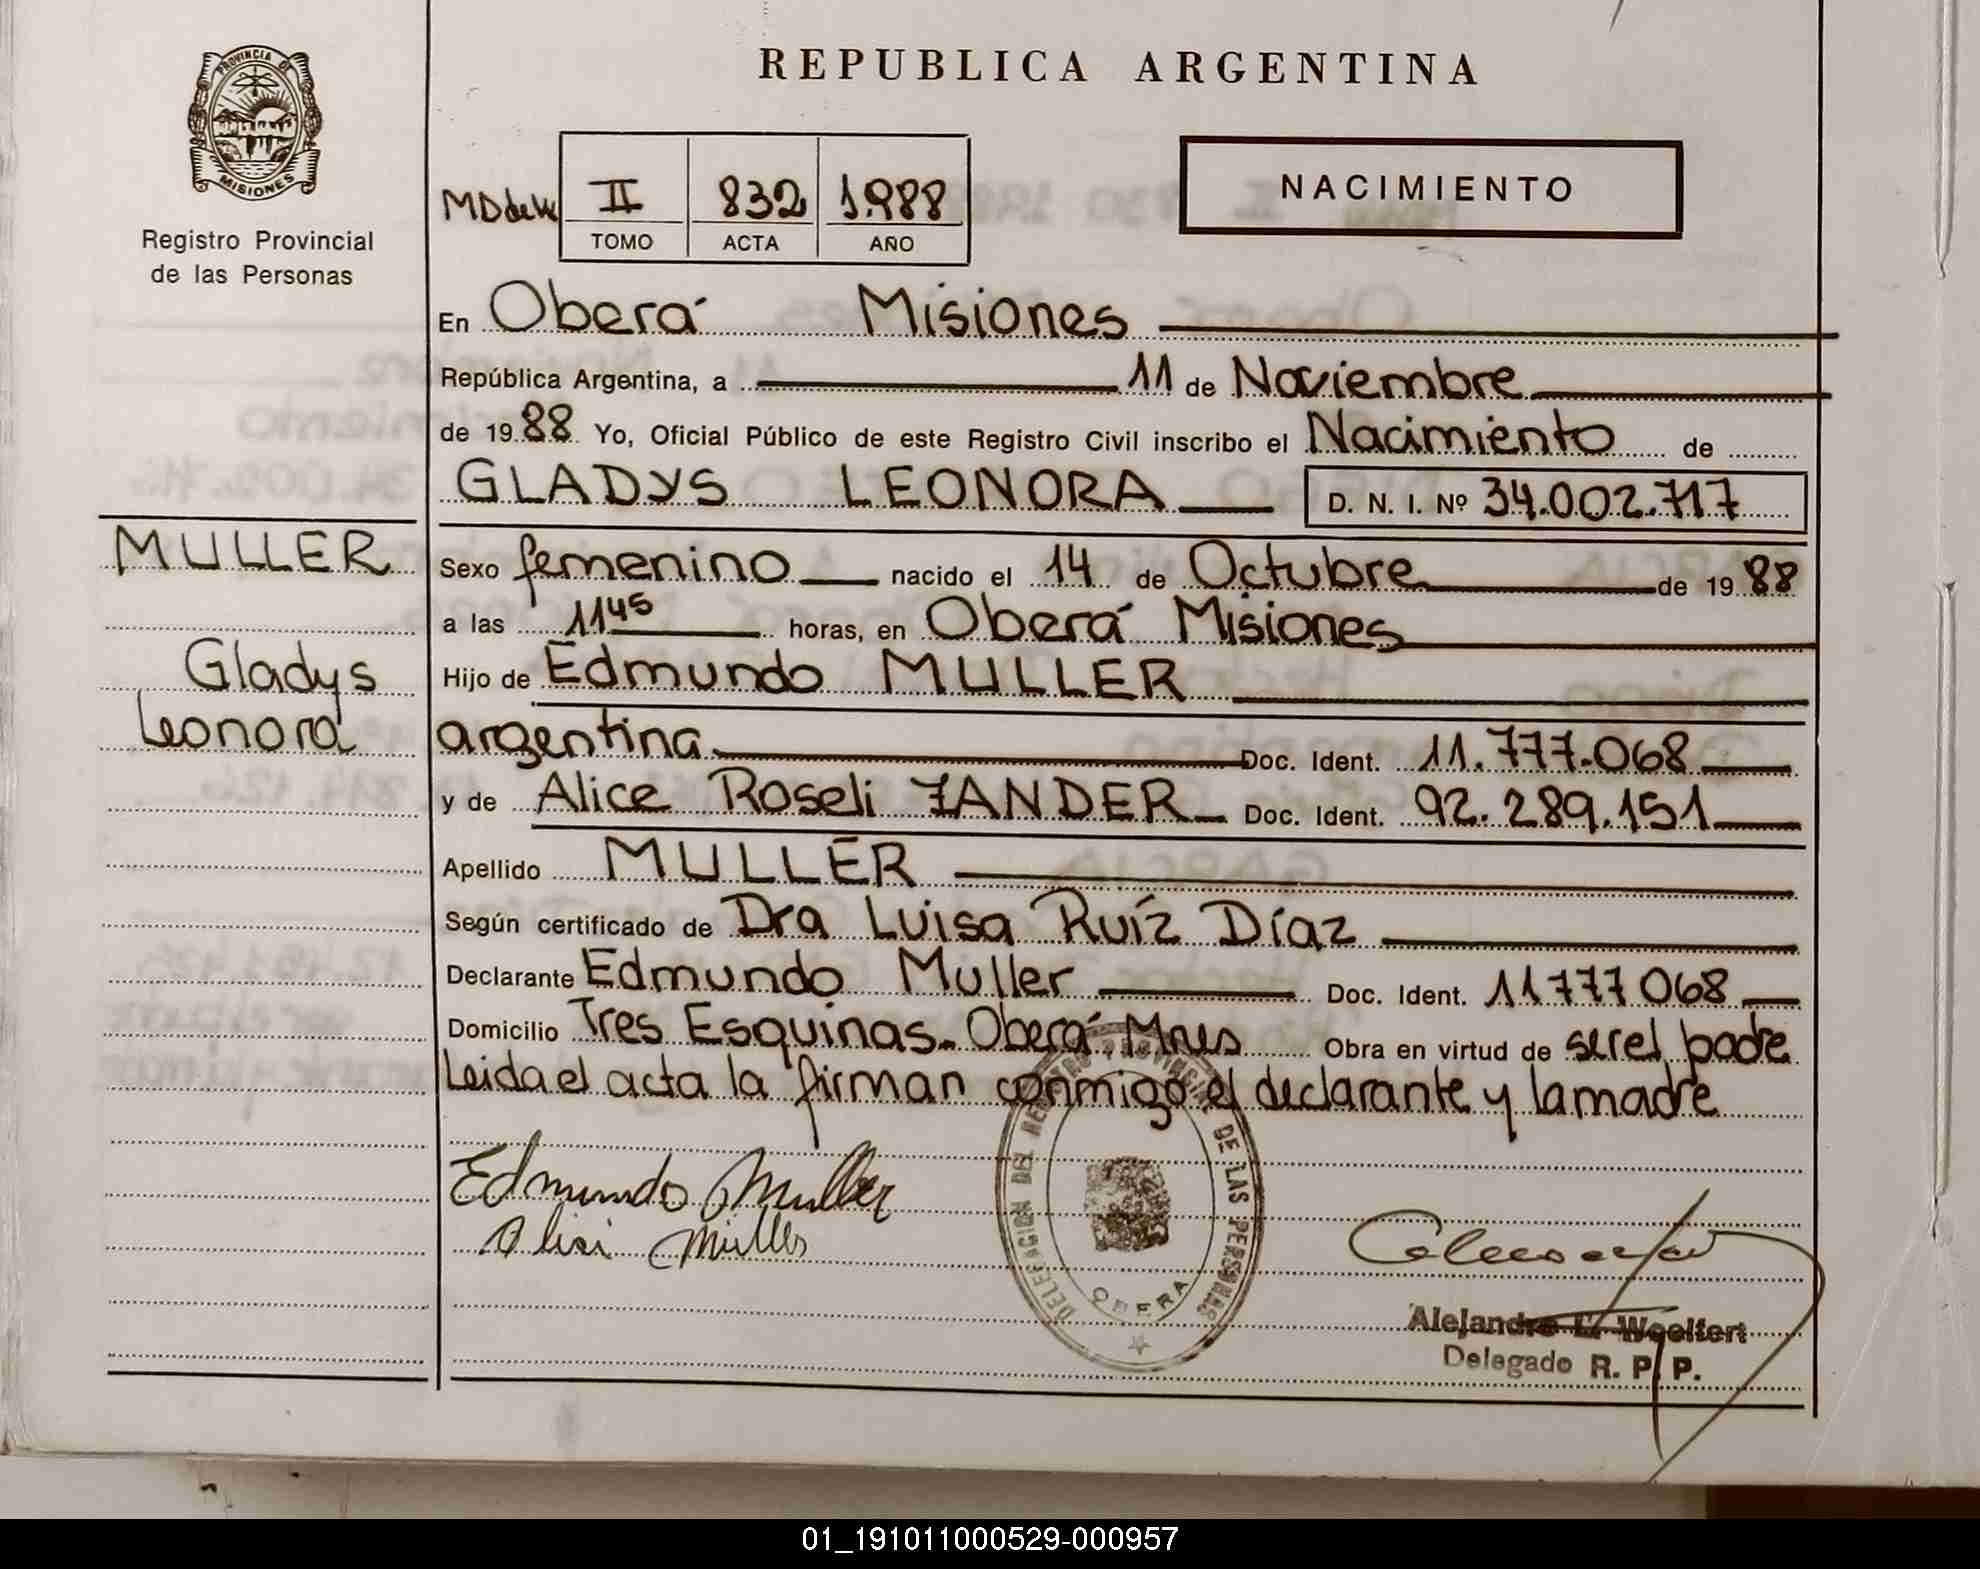 PROVINCIA DE
MISIONES
Registro Provincial
de las Personas
REPUBLICA ARGENTINA
II 832 1.988
TOMO ACTA AÑO
NACIMIENTO
En Oberá Misiones
República Argentina, a 11 de Noviembre
de 1988 Yo, Oficial Público de este Registro Civil inscribo el Nacimiento de
GLADYS LEONORA D. N. I. Nº 34.002.717
MULLER
Gladys
Leonora
Sexo femenino nacido el 14 de Octubre de 1988
a las 11 45 horas, en Oberá Misiones
Hijo de Edmundo MULLER
argentina Doc. Ident. 11.777.068
y de Alice Roseli ZANDER Doc. Ident. 92.289.151
Apellido MULLER
Según certificado de Dra Luisa Ruíz Díaz
Declarante Edmundo Muller Doc. Ident. 11777068
Domicilio Tres Esquinas. Oberá Mnes Obra en virtud de ser el padre
Leida el acta la firman conmigo el declarante y la madre
Edmundo Muller
DELEGACION DEL REGISTRO PROVINCIAL DE LAS PERSONAS
OBERA
Alejandro L. Woelfert
Delegado R. P. P.
01_191011000529-000957